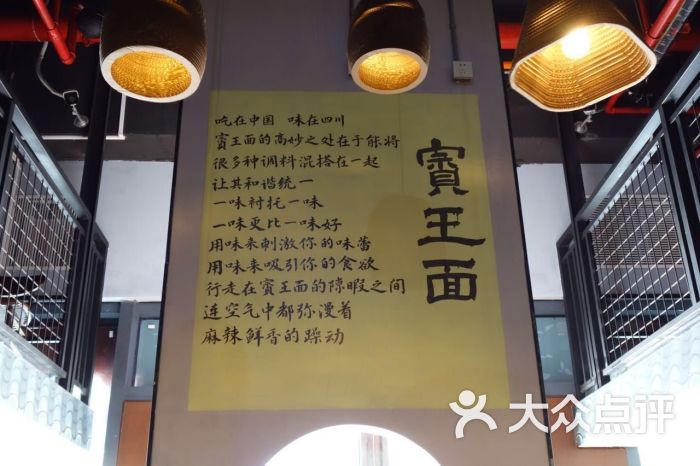 吃在中国 味在四川
賓王面的高妙之处在于能将
很多种调料混搭在一起
让其和谐统一
一味衬托一味
一味更比一味好
用味来刺激你的味蕾
用味来吸引你的食欲
行走在賓王面的隙暇之间
连空气中都弥漫着
麻辣鲜香的躁动
賓王面
大众点评